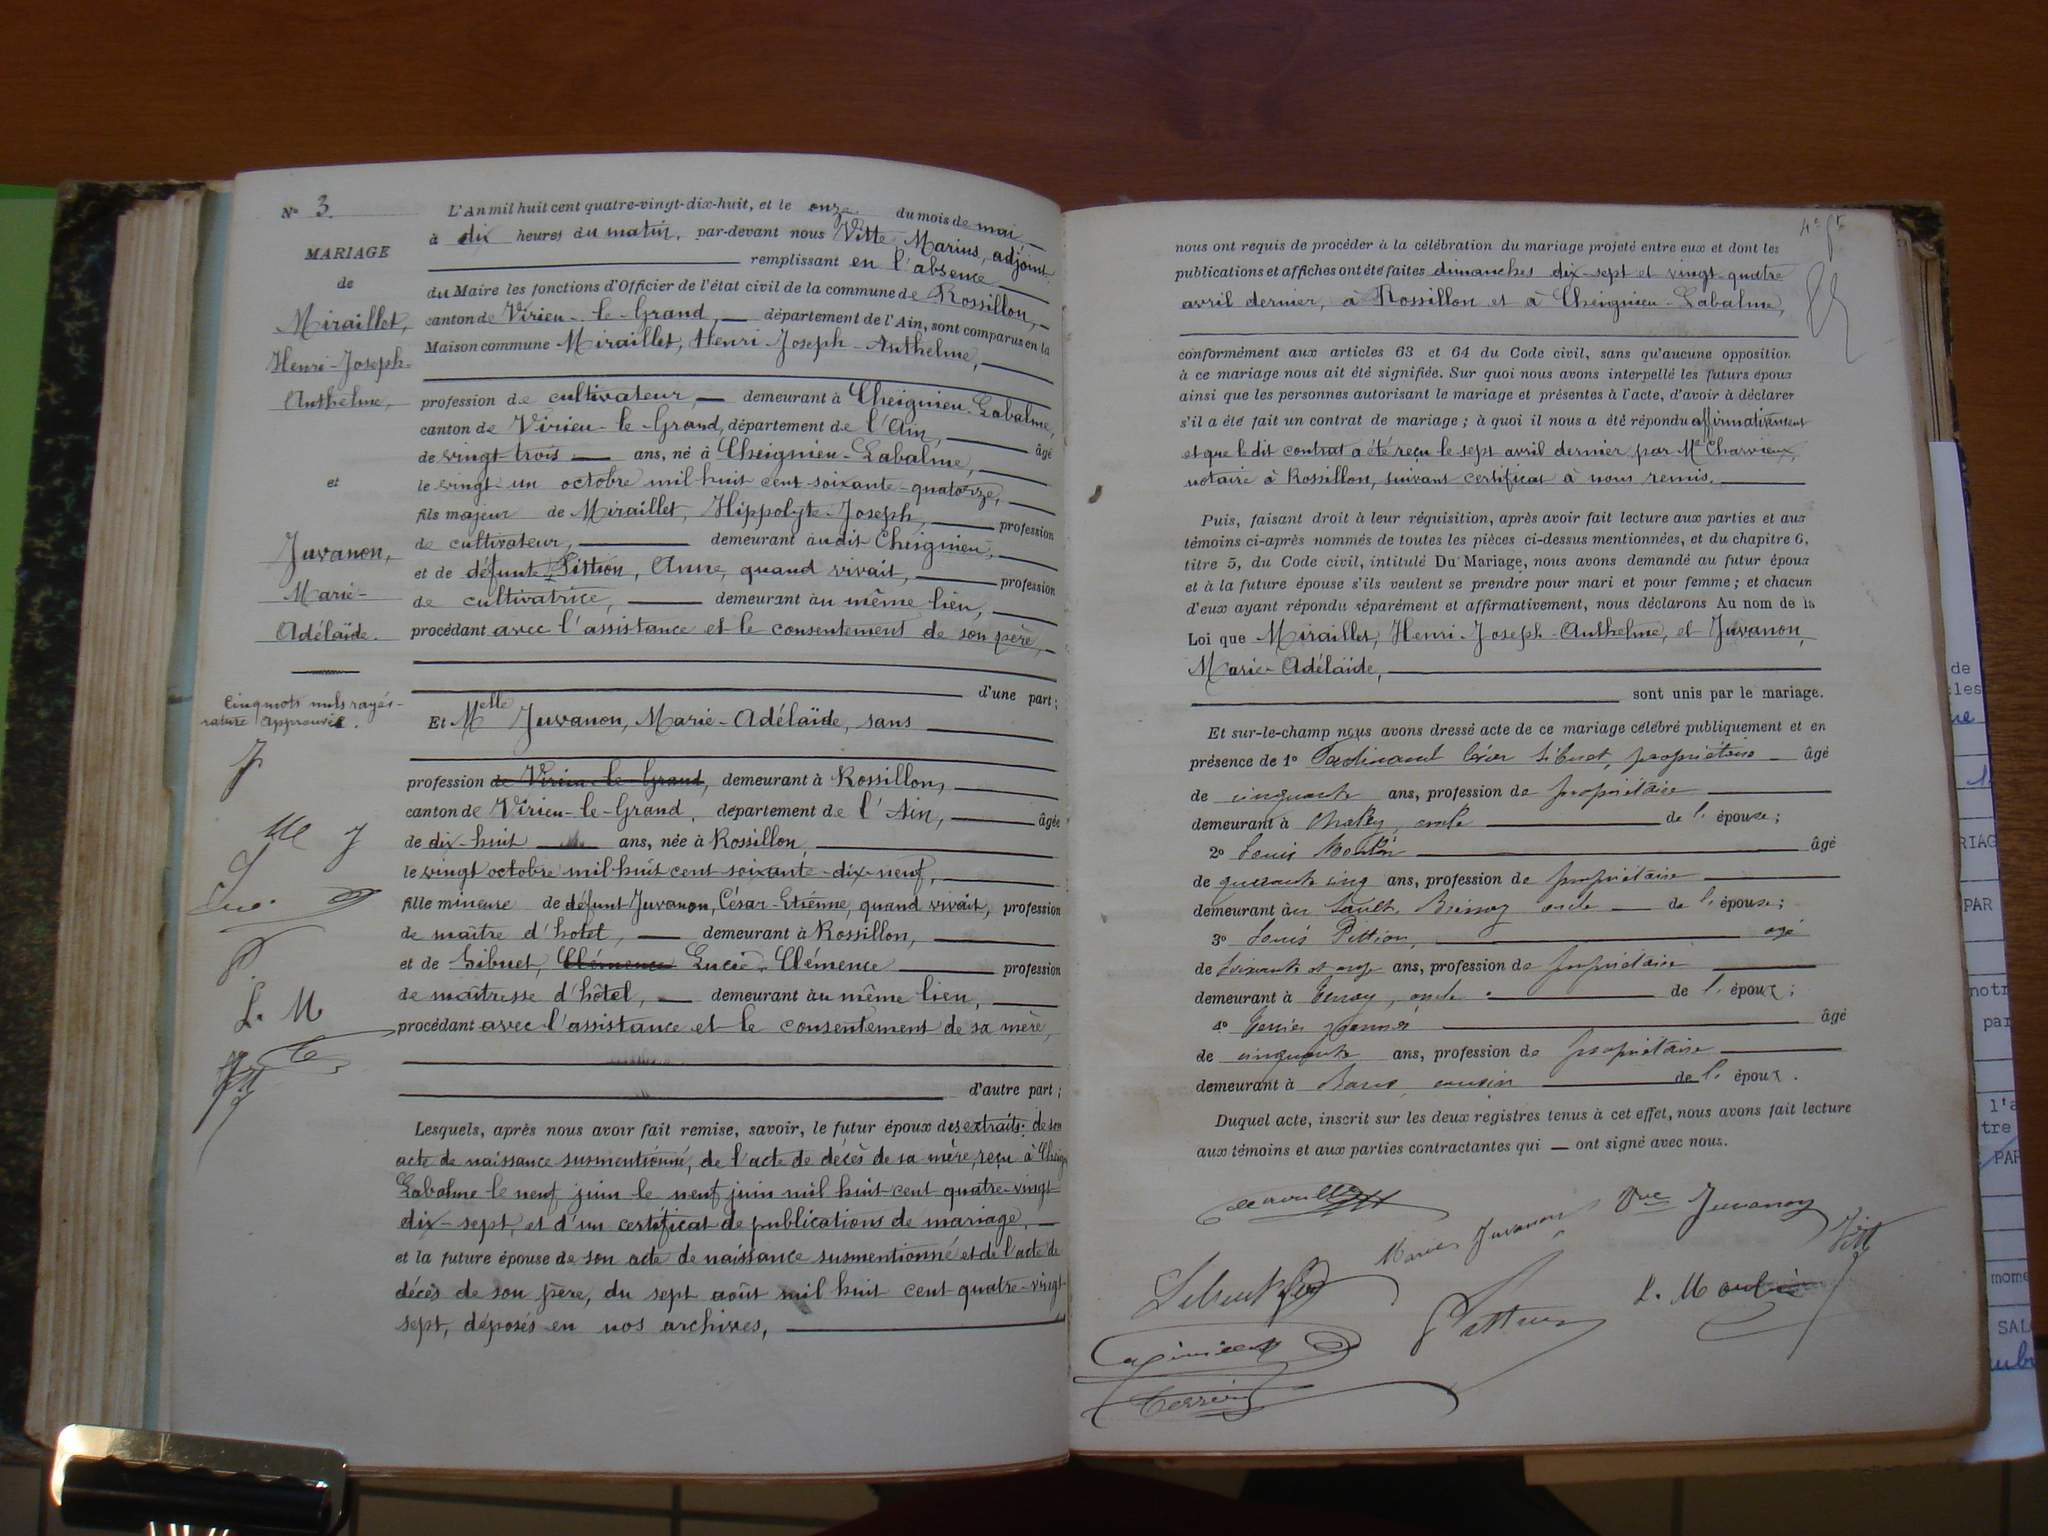 N° 3.
MARIAGE
de
Miraillet,
Henri-Joseph-
Anthelme,
et
Juvanon,
Marie-
Adélaïde.
Cinq mots nuls rayés-
rature approuvée.
L. M
L'An mil huit cent quatre-vingt-dix-huit, et le onze du mois de mai
à dix heures du matin, par-devant nous Vitte Marius, adjoint
remplissant en l'absence
du Maire les fonctions d'Officier de l'état civil de la commune de Rossillon,
canton de Virieu-le-Grand, département de l'Ain, sont comparus en la
Maison commune Miraillet, Henri-Joseph-Anthelme,
profession de cultivateur, demeurant à Cheignieu-Labalme,
canton de Virieu-le-Grand, département de l'Ain, âgé
de vingt-trois ans, né à Cheignieu-Labalme,
le vingt-un octobre mil huit cent soixante-quatorze,
fils majeur de Miraillet, Hippolyte-Joseph, profession
de cultivateur, demeurant audit Cheignieu,
et de défunte Pittion, Anne, quand vivait, profession
de cultivatrice, demeurant au même lieu,
procédant avec l'assistance et le consentement de son père,
d'une part;
Et Melle Juvanon, Marie-Adélaïde, sans
profession de Virieu-le-Grand, demeurant à Rossillon,
canton de Virieu-le-Grand, département de l'Ain, âgée
de dix-huit ans, née à Rossillon,
le vingt octobre mil huit cent soixante-dix-neuf,
fille mineure de défunt Juvanon, César-Etienne, quand vivait, profession
de maître d'hôtel, demeurant à Rossillon,
et de Sibuet, Clémence Lucie-Clémence profession
de maîtresse d'hôtel, demeurant au même lieu,
procédant avec l'assistance et le consentement de sa mère,
d'autre part;
Lesquels, après nous avoir fait remise, savoir, le futur époux des extraits: de son
acte de naissance susmentionné, de l'acte de décès de sa mère, reçu à Cheig
Labalme le neuf juin le neuf juin mil huit cent quatre-vingt
dix-sept, et d'un certificat de publications de mariage,
et la future épouse de son acte de naissance susmentionné et de l'acte de
décès de son père, du sept août mil huit cent quatre-vingt-
sept, déposés en nos archives,
nous ont requis de procéder à la célébration du mariage projeté entre eux et dont les
publications et affiches ont été faites dimanches dix-sept et vingt-quatre
avril dernier, à Rossillon et à Cheignieu-Labalme,
conformément aux articles 63 et 64 du Code civil, sans qu'aucune opposition
à ce mariage nous ait été signifiée. Sur quoi nous avons interpellé les futurs époux
ainsi que les personnes autorisant le mariage et présentes à l'acte, d'avoir à déclarer
s'il a été fait un contrat de mariage; à quoi il nous a été répondu affirmativement
et que le dit contrat a été reçu le sept avril dernier par Me Charvieux,
notaire à Rossillon, suivant certificat à nous remis.
Puis, faisant droit à leur réquisition, après avoir fait lecture aux parties et aux
témoins ci-après nommés de toutes les pièces ci-dessus mentionnées, et du chapitre 6,
titre 5, du Code civil, intitulé Du Mariage, nous avons demandé au futur époux
et à la future épouse s'ils veulent se prendre pour mari et pour femme; et chacun
d'eux ayant répondu séparément et affirmativement, nous déclarons Au nom de la
Loi que Miraillet, Henri-Joseph-Anthelme, et Juvanon,
Marie-Adélaïde,
sont unis par le mariage.
Et sur-le-champ nous avons dressé acte de ce mariage célébré publiquement et en
présence de 1° Ferdinand Sibuet, propriétaire âgé
de cinquante ans, profession de propriétaire
demeurant à oncle de l' épouse;
2° Louis âgé
de quarante cinq ans, profession de propriétaire
demeurant au Sault Brénaz oncle de l'épouse;
3° Louis Pittion, agé
de soixante et onze ans, profession de propriétaire
demeurant à Tenay, oncle de l' époux;
4° âgé
de cinquante ans, profession de propriétaire
demeurant à cousin de l' époux.
Duquel acte, inscrit sur les deux registres tenus à cet effet, nous avons fait lecture
aux témoins et aux parties contractantes qui — ont signé avec nous.
Marie Juvanon Vve Juvanon
Pittion L. M